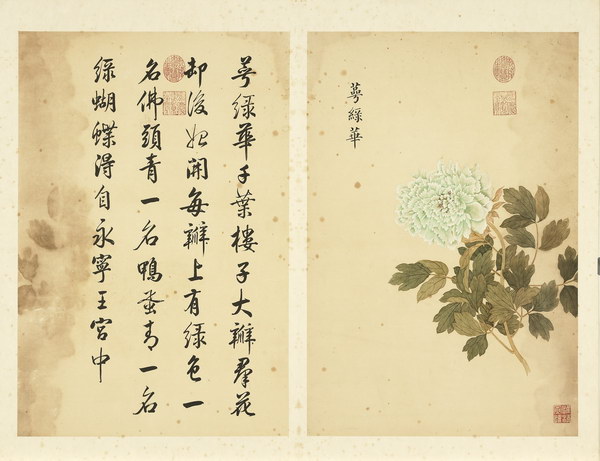 萼綠華
萼綠華千葉樓子大瓣羣花
卸後始開每瓣上有綠色一
名佛頭青一名鴨蛋青一名
綠蝴蝶得自永寧王宮中